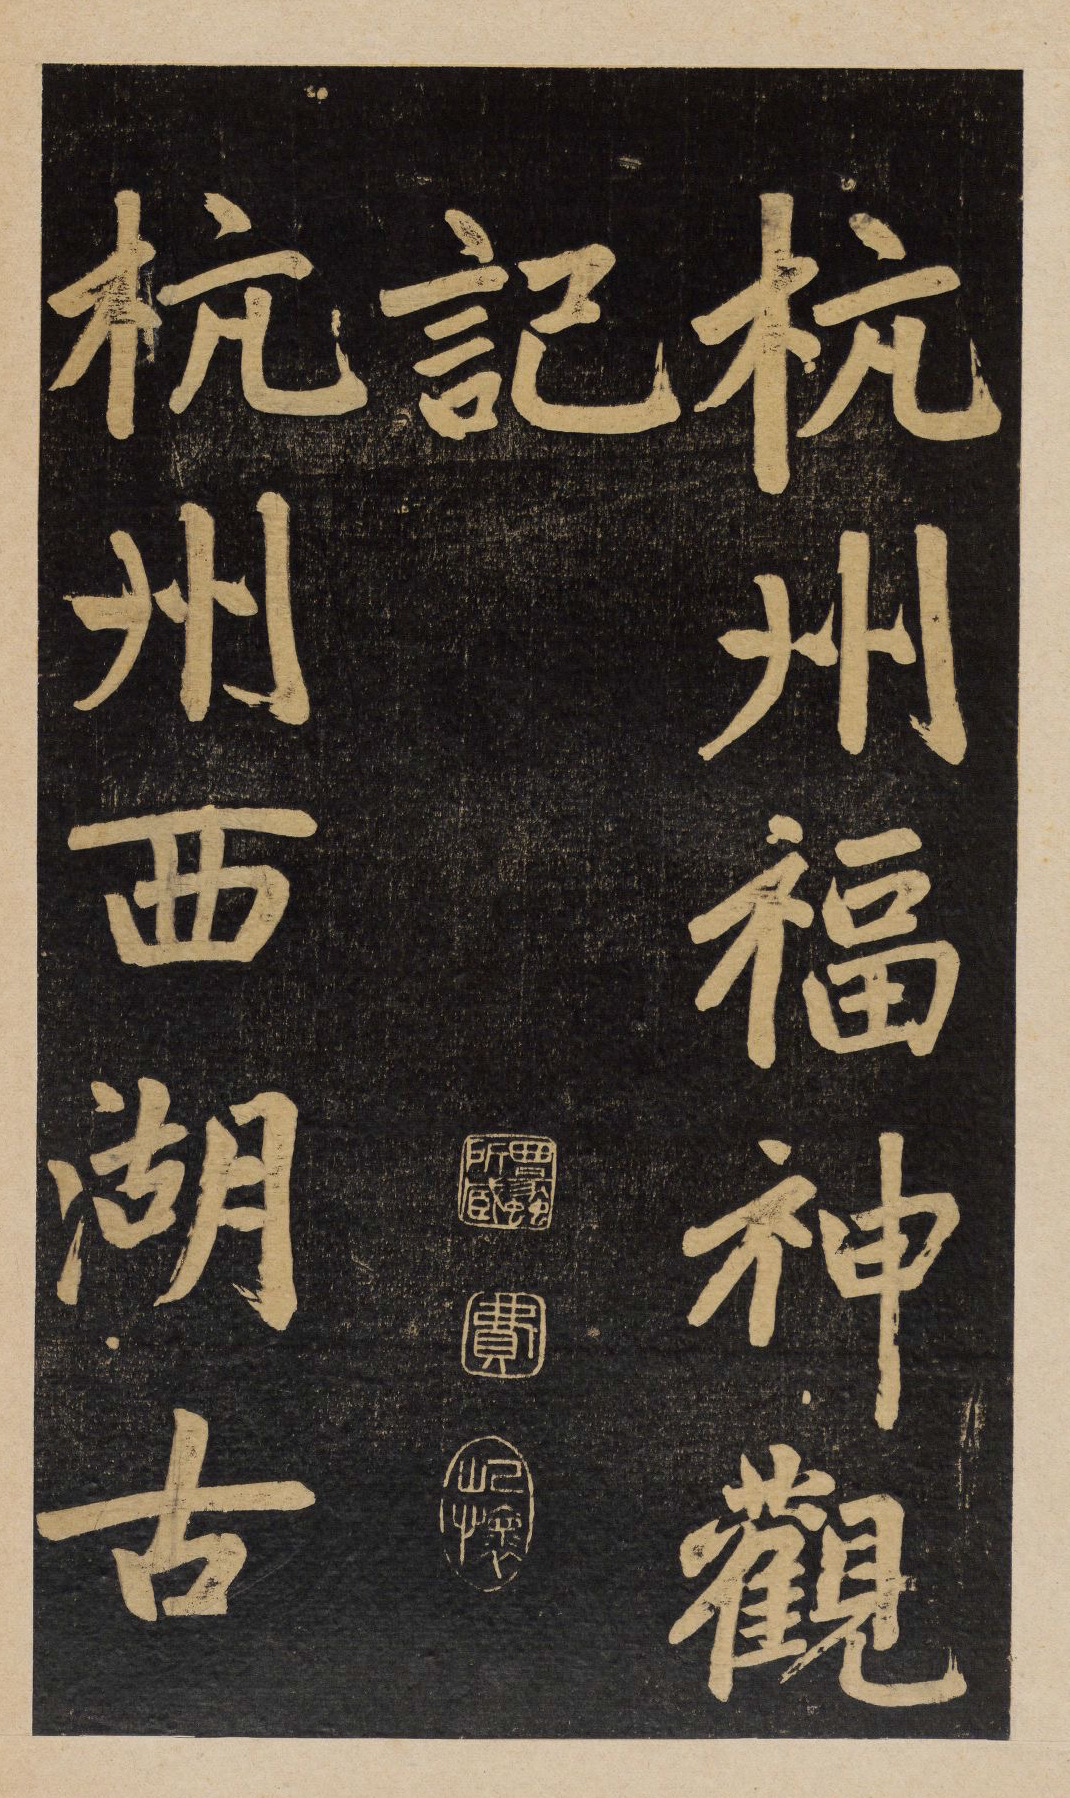 杭州福神觀
記
費
杭州西湖古